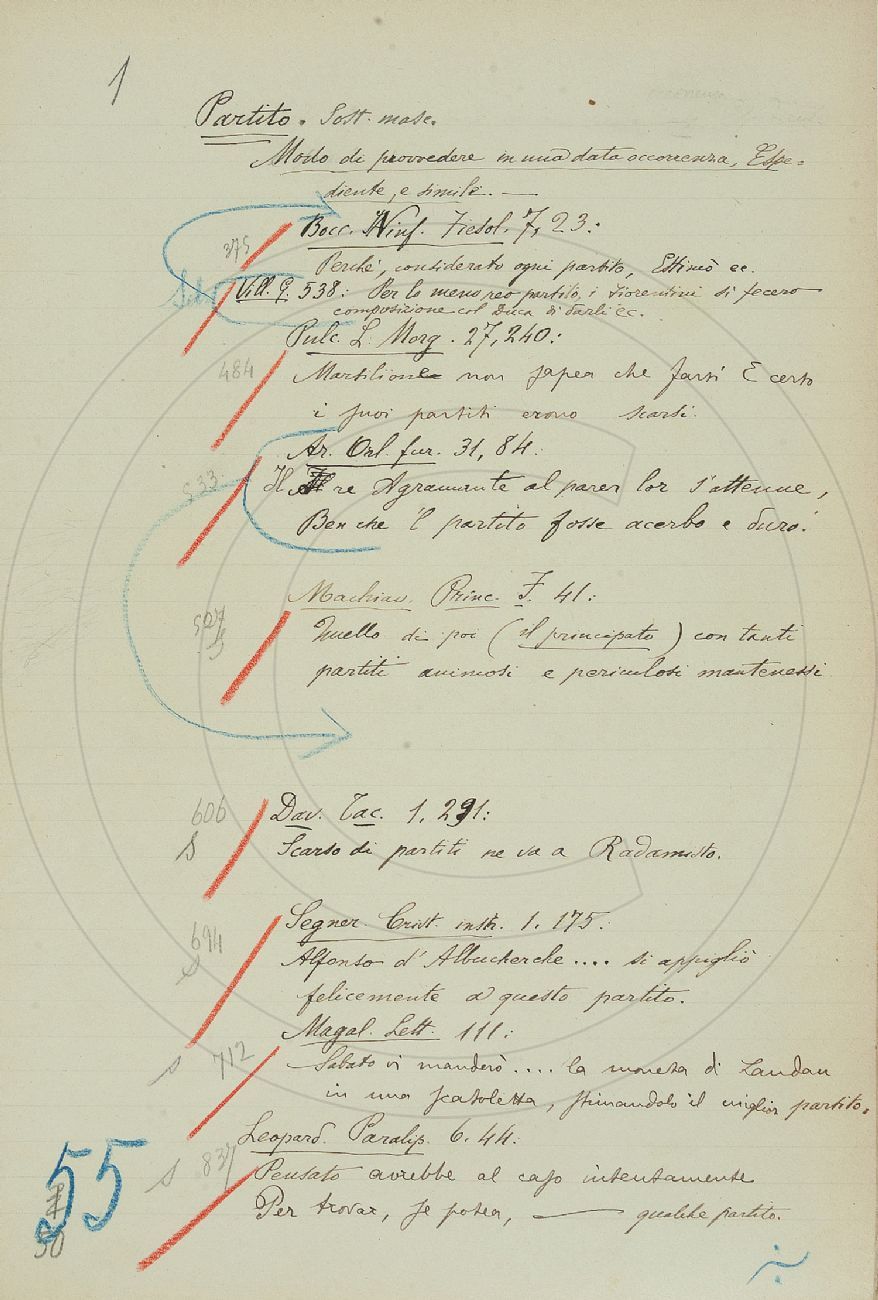 1
Partito. Sost. masc.
Modo di provvedere in una data occorrenza, Espe=
diente, e simile. —
Bocc. Ninf. Fiesol. 7, 23:
375
Perchè, considerato ogni partito, Estimò ec.
Vill. G. 538: Per lo meno reo partito, i Fiorentini si fecero
composizione col Duca di darli ec.
Pulc. L. Morg. 27, 240:
484
Marsilione non sapea che farsi E certo
i suoi partiti erono scarsi.
Ar. Orl. fur. 31, 84:
533
Il re Agramante al parer lor s'attenne,
Ben che 'l partito fosse acerbo e duro.
Machiav. Princ. I. 41:
507
S
Quello di poi (il principato) con tanti
partiti animosi e periculosi mantenessi
606
Dav. Tac. 1. 291:
S
Scarso di partiti ne va a Radamisto.
694
Segner. Crist. instr. 1. 175:
S
Alfonso d'Albucherche.... si appigliò
felicemente a questo partito.
Magal. Lett. 111:
S 712
Sabato vi manderò .... la moneta di Landau
in una scatoletta, stimandolo il miglior partito.
Leopard. Paralip. 6. 44:
S 837
Pensato avrebbe al caso intensamente
Per trovar, se potea, — qualche partito.
55
50